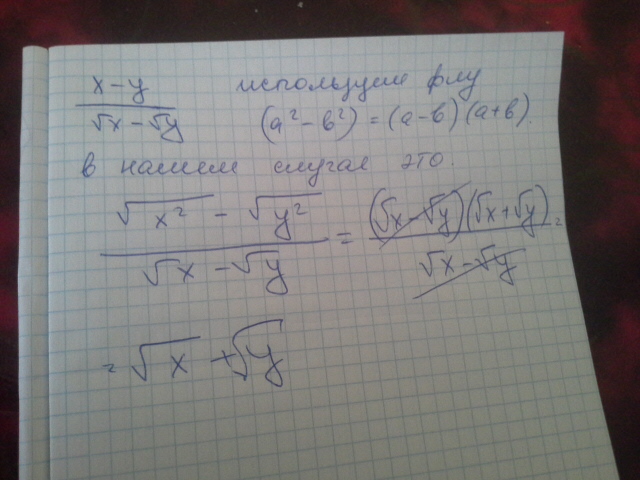 x-y / √x-√y используем ф-лу
(a²-b²)=(a-b)(a+b).
в нашем случае это.
√x² - √y² / √x - √y = (√x-√y)(√x+√y) / √x-√y =
= √x + √y